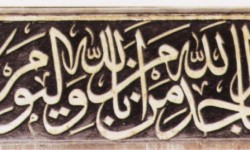 الله من آمن بالله واليوم